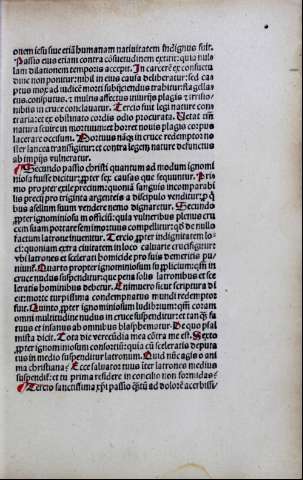 onem iesu siue etiā humanam natiuitatem indignus fuit.
Passio eius etiam contra cōsuetudinem extant: quia nulu
lam dilationem temporis accepit. In carcerē ex consuetu
dine non ponitur: nihil in eius causa deliberatur: sed cap
ptus mox ad iudicē morti subijcendus trahitur: flagellat
eus. conspuitur. et multis affectus iniurijs plagis et irrisio/
nibus in cruce conclauatur. Tercio fuit legi nature con
traria: et ex obstinato cordis odio procurata. Uetat eīm
natura seuire in mortuum: et hoc ꝛet nouis plagio corpus
lacerare occisum. Mortuus nāqꝫ in cruce redemptor no
ster lancea transfigitur: et contra legem nature defunctus
ab impijs vulneratur.
Secundo passio christi quantum ad modum ignomi
niosa fuisse dicitur: ꝓpter sex causas que sequuntur. Pri
mo propter exile precium: quoniā sanguis incomparabi
lis precij pro triginta argenteis a discipulo venditur: ꝓ q̄
bus asellum suum vendere nemo dignaretur. Secundo
ꝓpter ignominiosum officiū: quia vulneribus plenus cru
cem suam portare semimortuus compellitur: qd̄ de nullo
factum latrone inuenitur. Tercio ꝓpter indignitatem lo/
ci: quoniam extra ciuitatem in loco caluarie crucifigitur:
vbi latrones et scelerati homicide pro suis demeritis pu/
niunt̄. Quarto propter ignominiosum suppliciū: qm̄ in
cruce nudus suspenditur: que pena solis latronibus et sce
leratis hominibus debetur. Enimuero sicut scriptura di
cit: morte turpissima condempnatus mundi redemptor
fuit. Quinto ꝓpter ignominiosum ludibrium: qm̄ coram
omni multitudine nudus in cruce suspenditur: et tanqꝫ fa
tuus et insanus ab omnibus blasphematur. De quo psal
mista dicit. Tota die verecūdia mea cōtra me est. Sexto
ꝓpter ignominiosum consortiū: quia cū sceleratis deputa
tus in medio suspenditur latronum. Quid nūc agis o ani
ma christiana? Ecce saluator tuus iter latrones medius
suspendit̄: et tu prima residere in concilio non formidas?
Tercio sanctissima xp̄i passio q̄tū ad dolorē acerbissi/